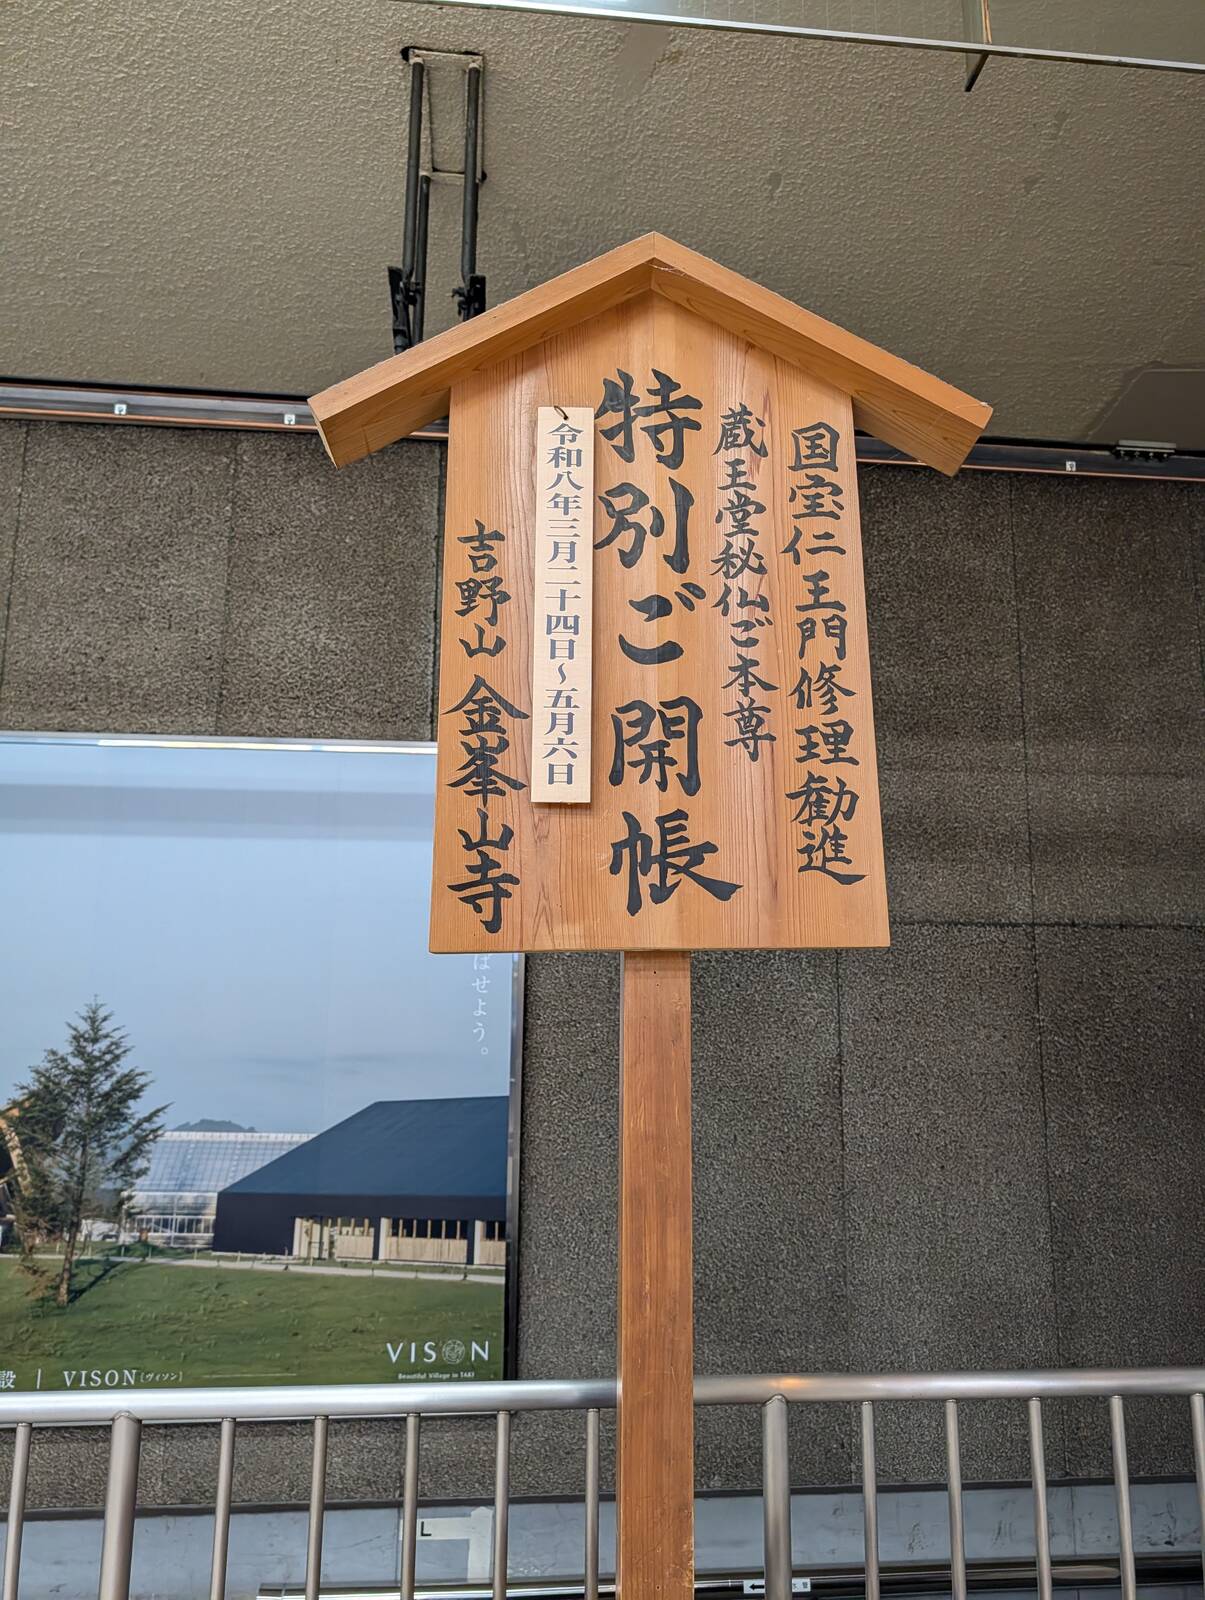 国宝仁王門修理勧進
蔵王堂秘仏ご本尊
特別ご開帳
令和八年三月二十四日～五月六日
吉野山 金峯山寺
ばせよう。
VISON
Beautiful Village in TAKI
設 | VISON［ヴィソン］
L